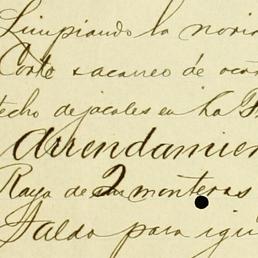 Limpiando la noria
Corte y acarreo de
techo de jacales en la
Arrendamien
Raya de 2 monteros
Saldo para igu